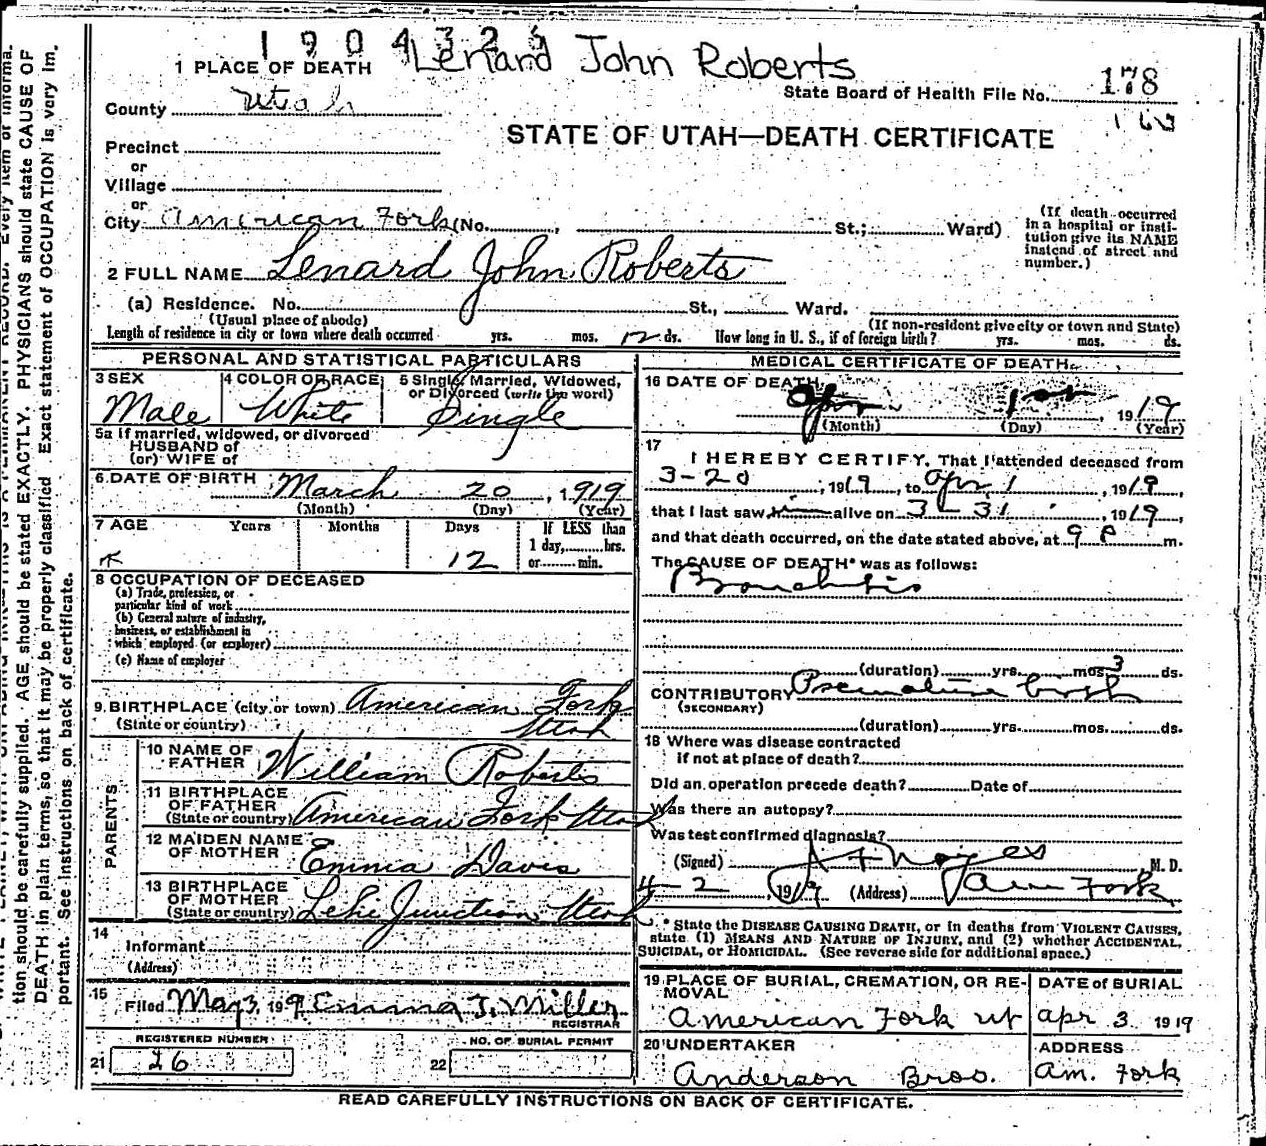 190432
Lenard John Roberts
1 PLACE OF DEATH
State Board of Health File No. 178
County Utah
STATE OF UTAH—DEATH CERTIFICATE
Precinct
or
Village
or
City American Fork (No. , St.; Ward)
(If death occurred in a hospital or institution give its NAME instead of street and number.)
2 FULL NAME Lenard John Roberts
(a) Residence. No. St., Ward.
(Usual place of abode) (If non-resident give city or town and State)
Length of residence in city or town where death occurred yrs. mos. 12 ds. How long in U. S., if of foreign birth? yrs. mos. ds.
PERSONAL AND STATISTICAL PARTICULARS
3 SEX
Male
4 COLOR OR RACE
White
5 Single, Married, Widowed, or Divorced (write the word)
Single
5a If married, widowed, or divorced
HUSBAND of
(or) WIFE of
6 DATE OF BIRTH March 20, 1919
(Month) (Day) (Year)
7 AGE Years Months Days If LESS than
12 1 day, hrs.
or min.
8 OCCUPATION OF DECEASED
(a) Trade, profession, or
particular kind of work
(b) General nature of industry,
business, or establishment in
which employed (or employer)
(c) Name of employer
9. BIRTHPLACE (city or town) American Fork
(State or country) Utah
PARENTS
10 NAME OF FATHER William Roberts
11 BIRTHPLACE OF FATHER
(State or country) American Fork Utah
12 MAIDEN NAME OF MOTHER Emma Davis
13 BIRTHPLACE OF MOTHER
(State or country) Lehi Junction Utah
14
Informant
(Address)
15
Filed May 3, 1919 Emma J. Miller
REGISTRAR
REGISTERED NUMBER
21 26
NO. OF BURIAL PERMIT
22
MEDICAL CERTIFICATE OF DEATH.
16 DATE OF DEATH
Apr 1st, 1919
(Month) (Day) (Year)
17
I HEREBY CERTIFY, That I attended deceased from
3-20, 1919, to Apr 1, 1919,
that I last saw him alive on 3-31, 1919,
and that death occurred, on the date stated above, at 9 P m.
The CAUSE OF DEATH* was as follows:
Bronchitis
(duration) yrs. mos. 3 ds.
CONTRIBUTORY Premature birth
(SECONDARY)
(duration) yrs. mos. ds.
18 Where was disease contracted
if not at place of death?
Did an operation precede death? Date of
Was there an autopsy?
Was test confirmed diagnosis?
(Signed) M. D.
4-2, 1919 (Address) Am Fork
* State the DISEASE CAUSING DEATH, or in deaths from VIOLENT CAUSES,
state (1) MEANS AND NATURE OF INJURY, and (2) whether ACCIDENTAL,
SUICIDAL, or HOMICIDAL. (See reverse side for additional space.)
19 PLACE OF BURIAL, CREMATION, OR REMOVAL
American Fork ut
DATE of BURIAL
apr 3 1919
20 UNDERTAKER
Anderson Bros.
ADDRESS
am. Fork
READ CAREFULLY INSTRUCTIONS ON BACK OF CERTIFICATE.
tion should be carefully supplied. AGE should be stated EXACTLY. PHYSICIANS should state CAUSE OF
DEATH in plain terms, so that it may be properly classified. Exact statement of OCCUPATION is very im-
portant. See instructions on back of certificate.